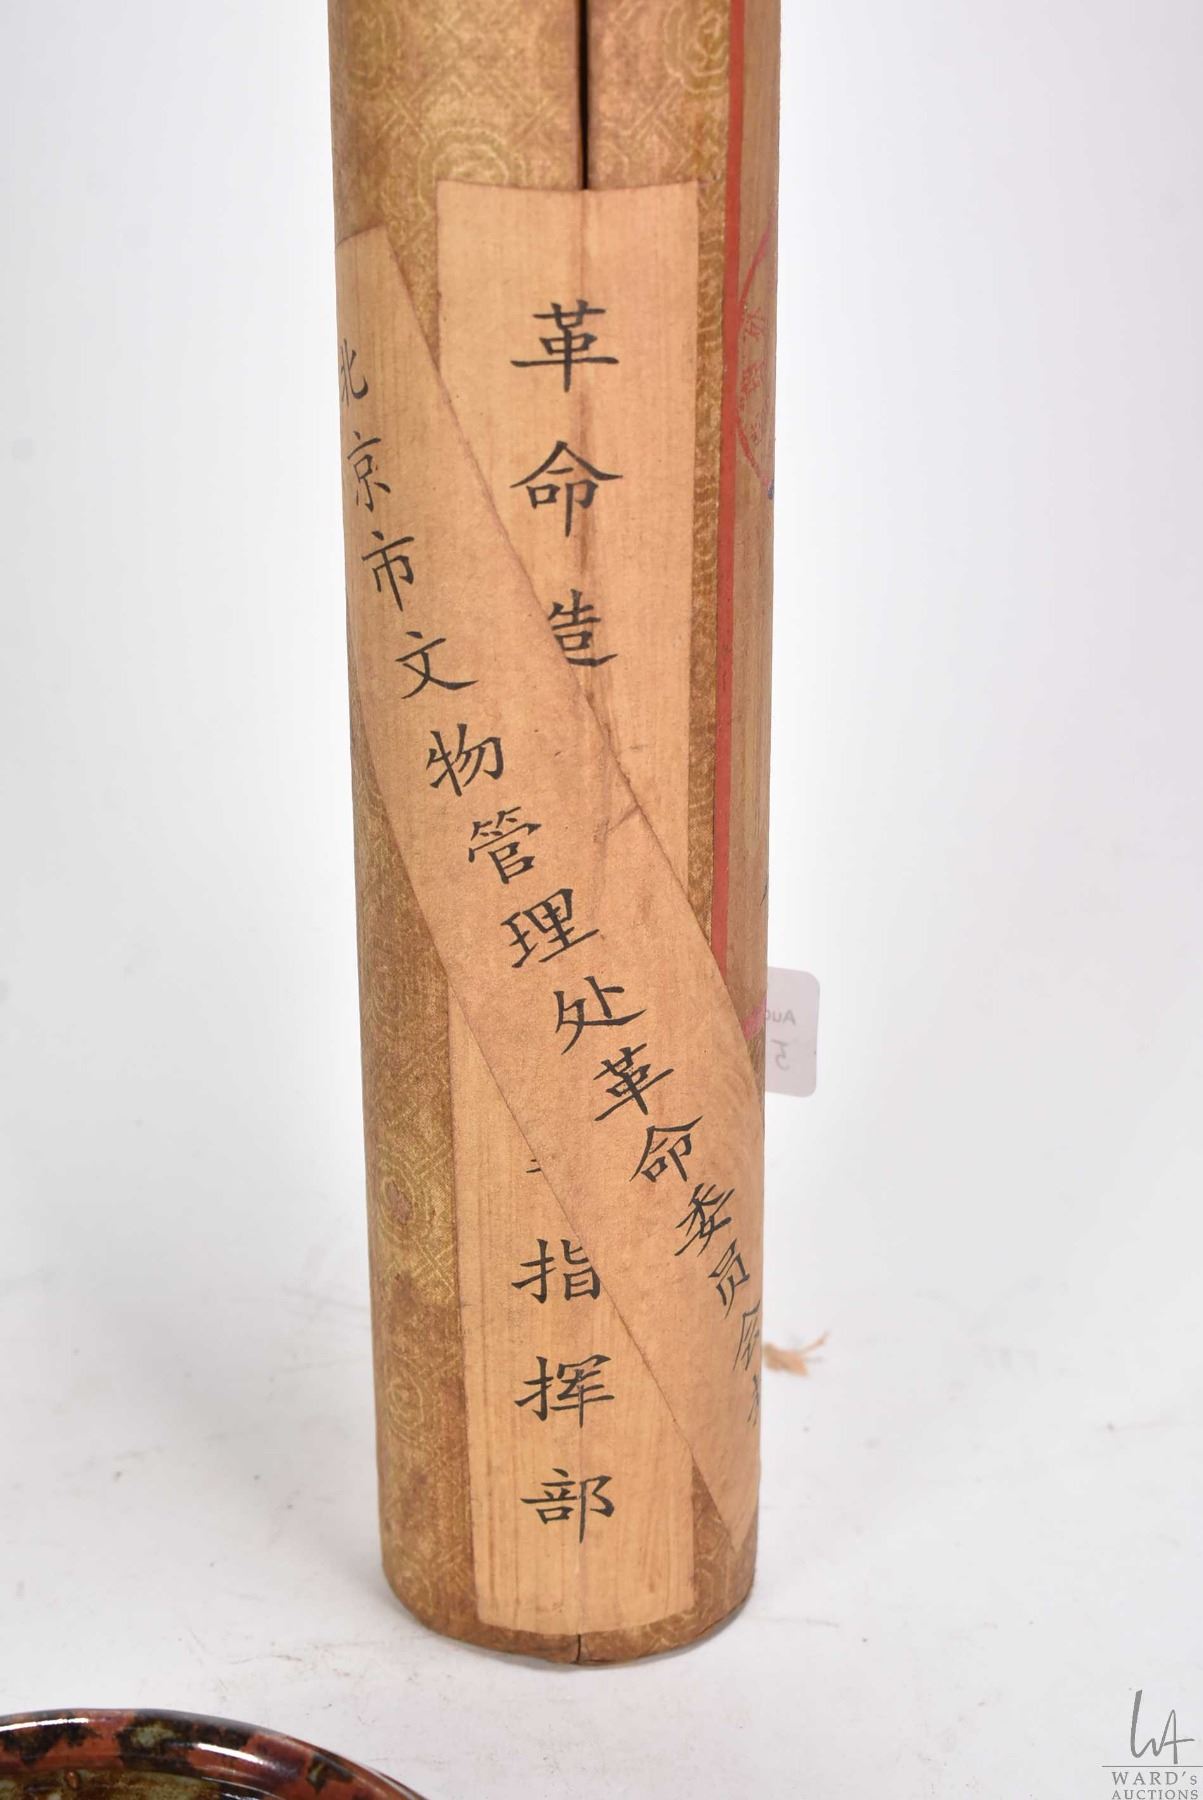 革命造
指挥部
北京市文物管理处革命委员会
Auc
5
WARD's
AUCTIONS